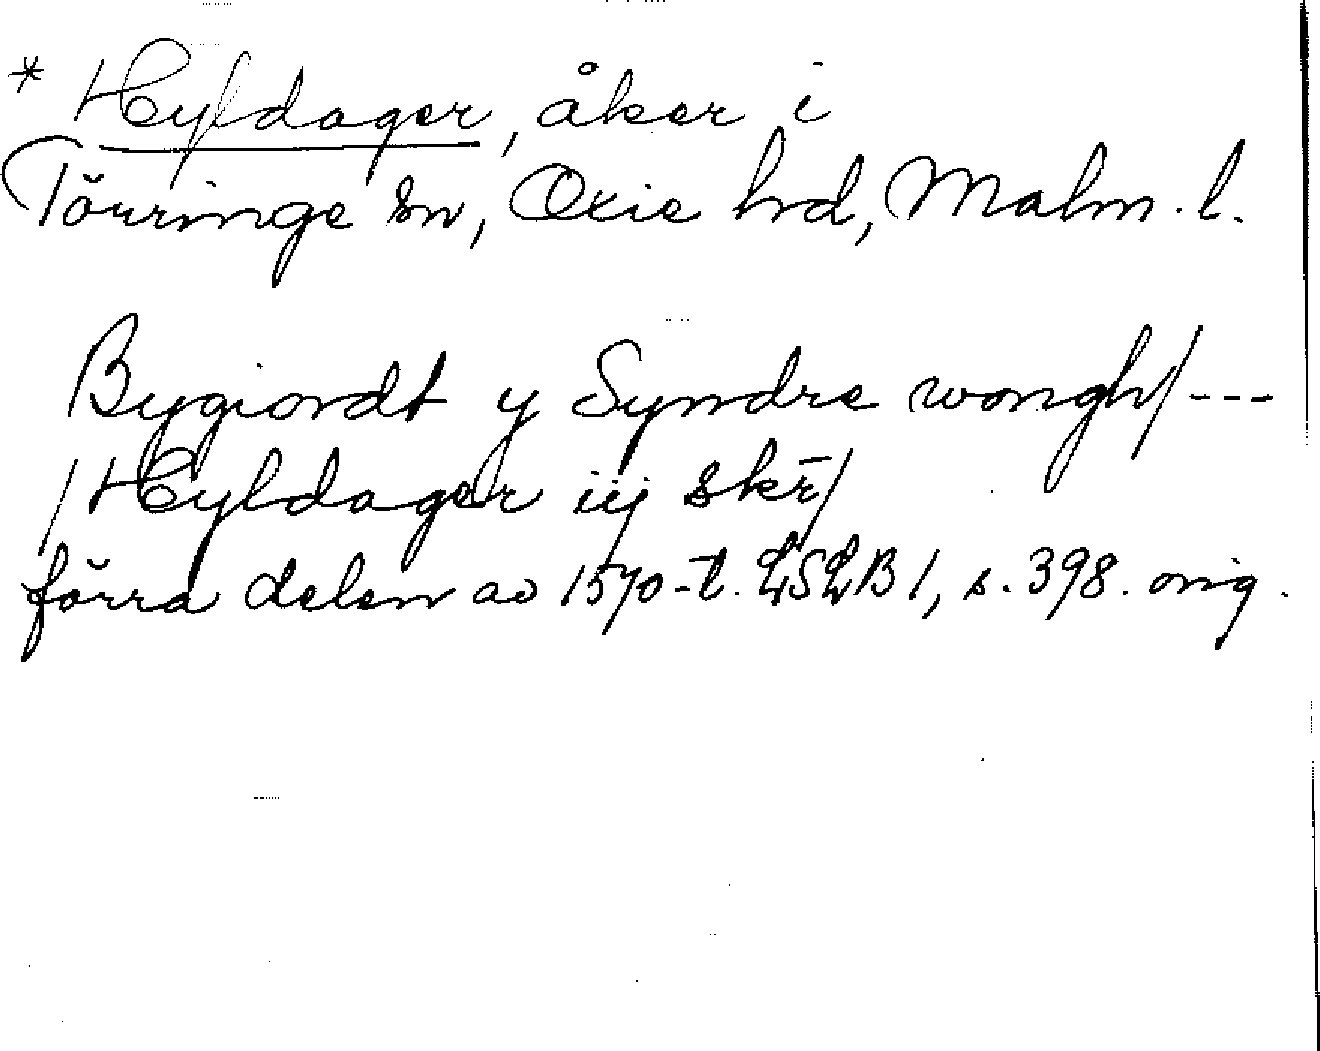 * Hyldager, åker i
Törringe sn, Oxie hrd, Malm. l.
Bygiordt y Syndre wongh/ ---
/Hyldager iij skr̄/
förra delen av 1570-t. LSLB 1, s. 398. orig.